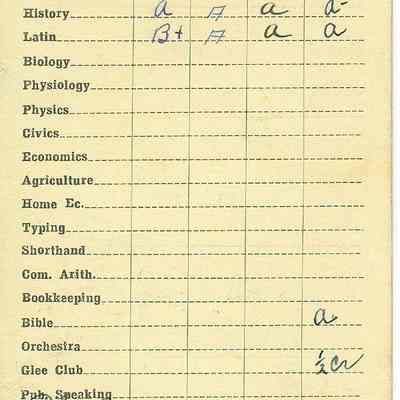 History a A a a-
Latin B+ A a a
Biology
Physiology
Physics
Civics
Economics
Agriculture
Home Ec.
Typing
Shorthand
Com. Arith.
Bookkeeping
Bible a
Orchestra
Glee Club ½ cr
Pub. Speaking